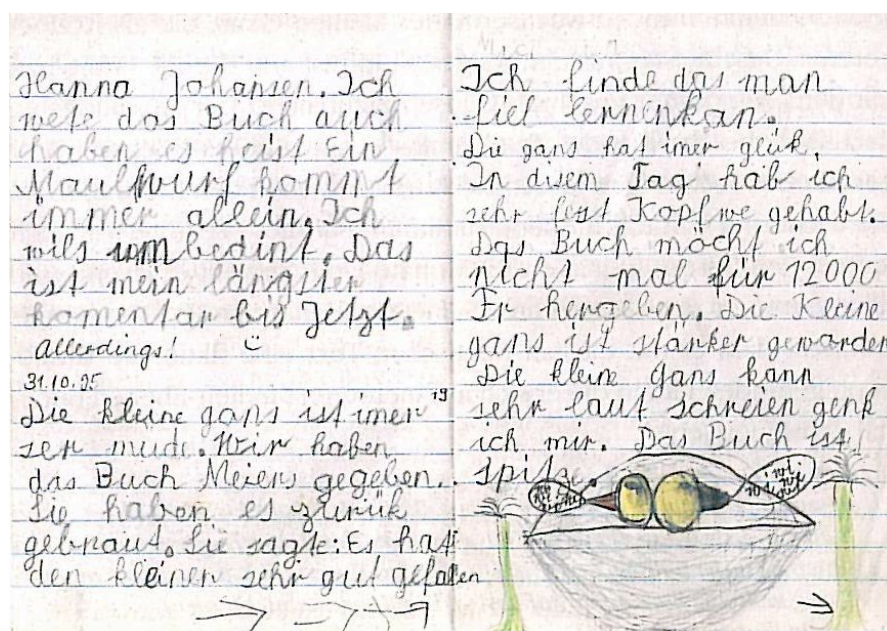 Hanna Johansen. Ich
wete das Buch auch
haben es heist Ein
Maulwurf kommt
immer allein. Ich
wils umbedint. Das
ist mein längster
komentar bis Jetzt.
Allerdings!
31.10.95
Die kleine gans ist imer
ser müde. Wir haben
das Buch Meiers gegeben.
Sie haben es zurük
gebraut. Sie sagte: Es hat
den kleinen sehr gut gefallen
Ich finde das man
fiel lernenkan.
Die gans hat imer glük.
In disem Tag hab ich
sehr fest Kopfwe gehabt.
Das Buch möcht ich
nicht mal für 12000
Fr hergeben. Die Kleine
gans ist stärker geworden
Die kleine Gans kann
sehr laut schreien genk
ich mir. Das Buch ist
spitze.